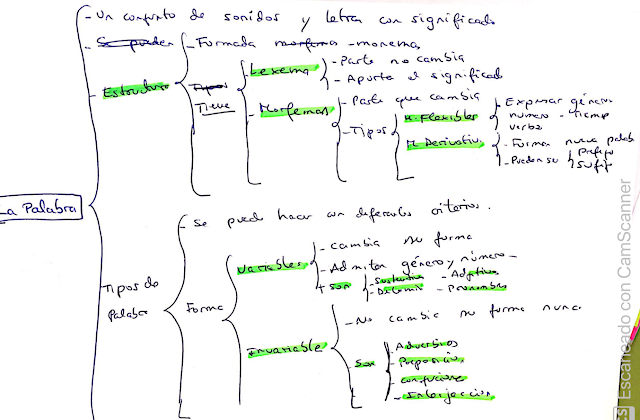 - Un conjunto de sonidos y letra con significado
- Se pueden
- Formada morfema - monema
- Estructura
Tipos
Tiene
- Lexema
- Parte no cambia
- Aporta el significad
- Morfemas
- Parte que cambia
- Tipos
M. Flexibles
- Expresar género
número - tiemp
verbo
M. Derivativ.
- Forma nueva palab
- Pueden se
Prefijo
Sufijo
La Palabra
Tipos de
Palabra
- Se puede hacer con diferentes criterios.
Forma
Variables
- cambia su forma
- Admiten género y número -
+ Son
- Sustantivo - Adjetivo
- Determin - Pronombre
Invariable
- No cambia su forma nunca
- Son
- Adverbios
- Preposicio,
- conjuncione
- Interjeccion,
Escaneado con CamScanner